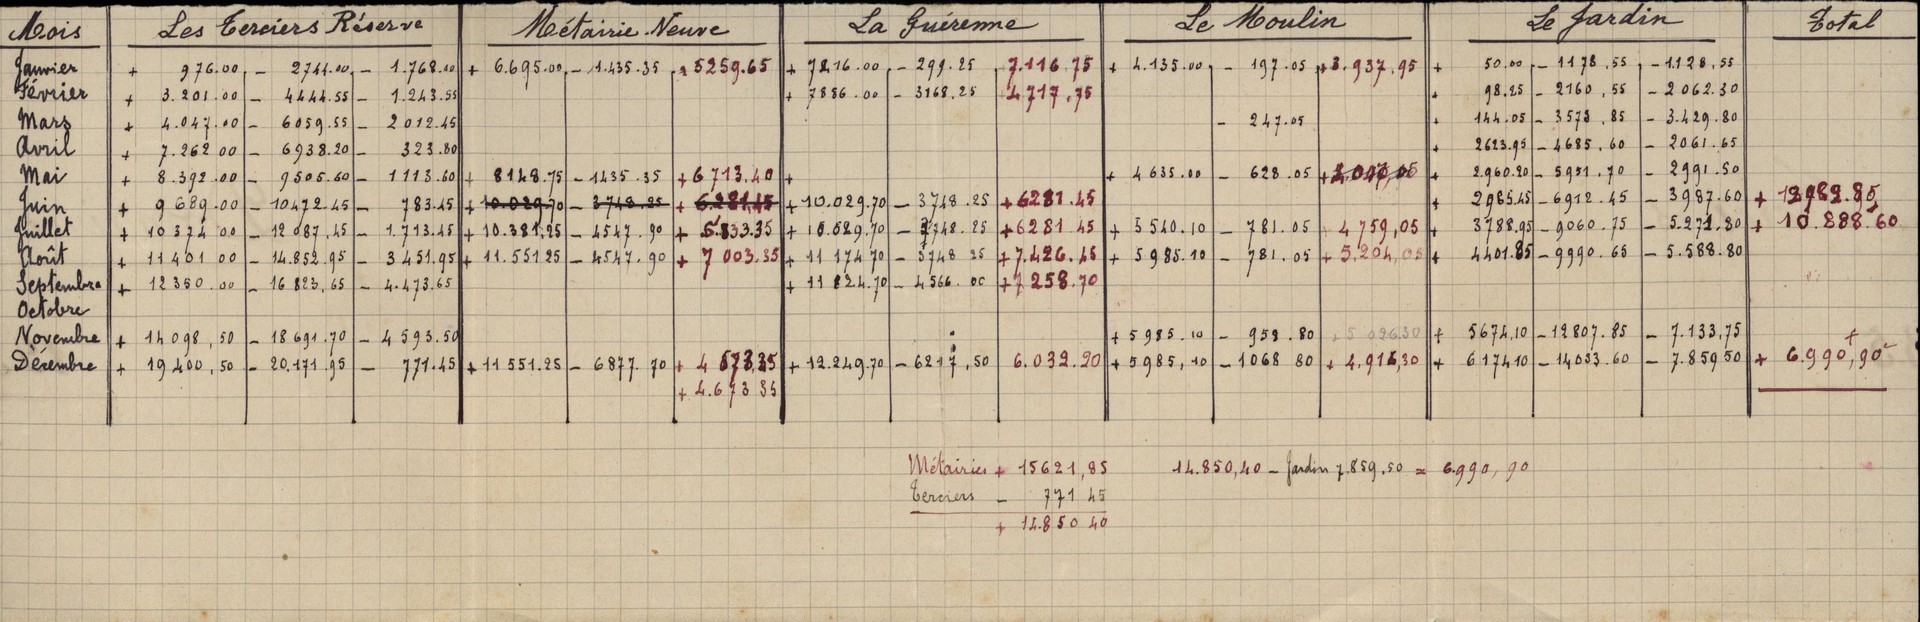 Mois Les Terciers Réserve Métairie Neuve La Guérenne Le Moulin Le Jardin Total
Janvier + 976.00 - 2744.00 - 1.768.00 + 6.695.00 - 1.435.35 + 5259.65 + 7216.00 - 299.25 7.116.75 + 4.135.00 - 197.05 +3.937.95 + 50.00 - 1178,55 - 1.128,55
Février + 3.201.00 - 4444.55 - 1.243.55 + 7886.00 - 3168.25 4717,75 + 98.25 - 2160,55 - 2062.30
Mars + 4.047.00 - 6059.55 - 2012.45 - 247.05 + 144.05 - 3573,85 - 3.429.80
Avril + 7.262 00 - 6938.20 - 323.80 + 2623.95 - 4685,60 - 2061.65
Mai + 8.392.00 - 9505.60 - 1113.60 + 8148.75 - 1435.35 + 6713.40 + + 4635.00 - 628.05 + 2.960.20 - 5951.70 - 2991.50
Juin + 9689.00 - 10472.45 - 783.45 + 10.029.70 - 3748.25 + 6.281,45 + 10.029.70 - 3748.25 + 6281.45 + 2985.45 - 6912.45 - 3987.60 + 12982.85
Juillet + 10374 00 - 12087,45 - 1.713.45 + 10.381,25 - 4547.90 + 5833.35 + 10.029,70 - 3748.25 + 6281 45 + 5540.10 - 781.05 4759,05 + 3788.95 - 9060.75 - 5.271.80 + 10.888.60
Août + 11401 00 - 14.852.95 - 3451.95 + 11.551 25 - 4547.90 + 7003.35 + 11174 70 - 3748 25 + 7.426.45 + 5985.10 - 781.05 + 5.204,05 + 4401.85 - 9990.65 - 5.588.80
Septembre + 12350.00 - 16823,65 - 4.473.65 + 11824.70 - 4566.00 + 7258.70
Octobre
Novembre + 14098,50 - 18691.70 - 4593.50 + 5985.10 - 958.80 + 5 026.30 + 5674,10 - 12807.85 - 7.133,75
Décembre + 19400,50 - 20.171.95 - 771.45 + 11551.25 - 6877.70 + 4673,35 + 12.249.70 - 6217,50 6.032.20 + 5985,10 - 1068 80 + 4.916,30 + 617410 - 14033.60 - 7.859,50 + 6.990,90
+ 4.673 35
Métairies + 15621,85 14.850,40 - Jardin 7.859,50 = 6.990,90
Terciers - 771 45
+ 14.850 40